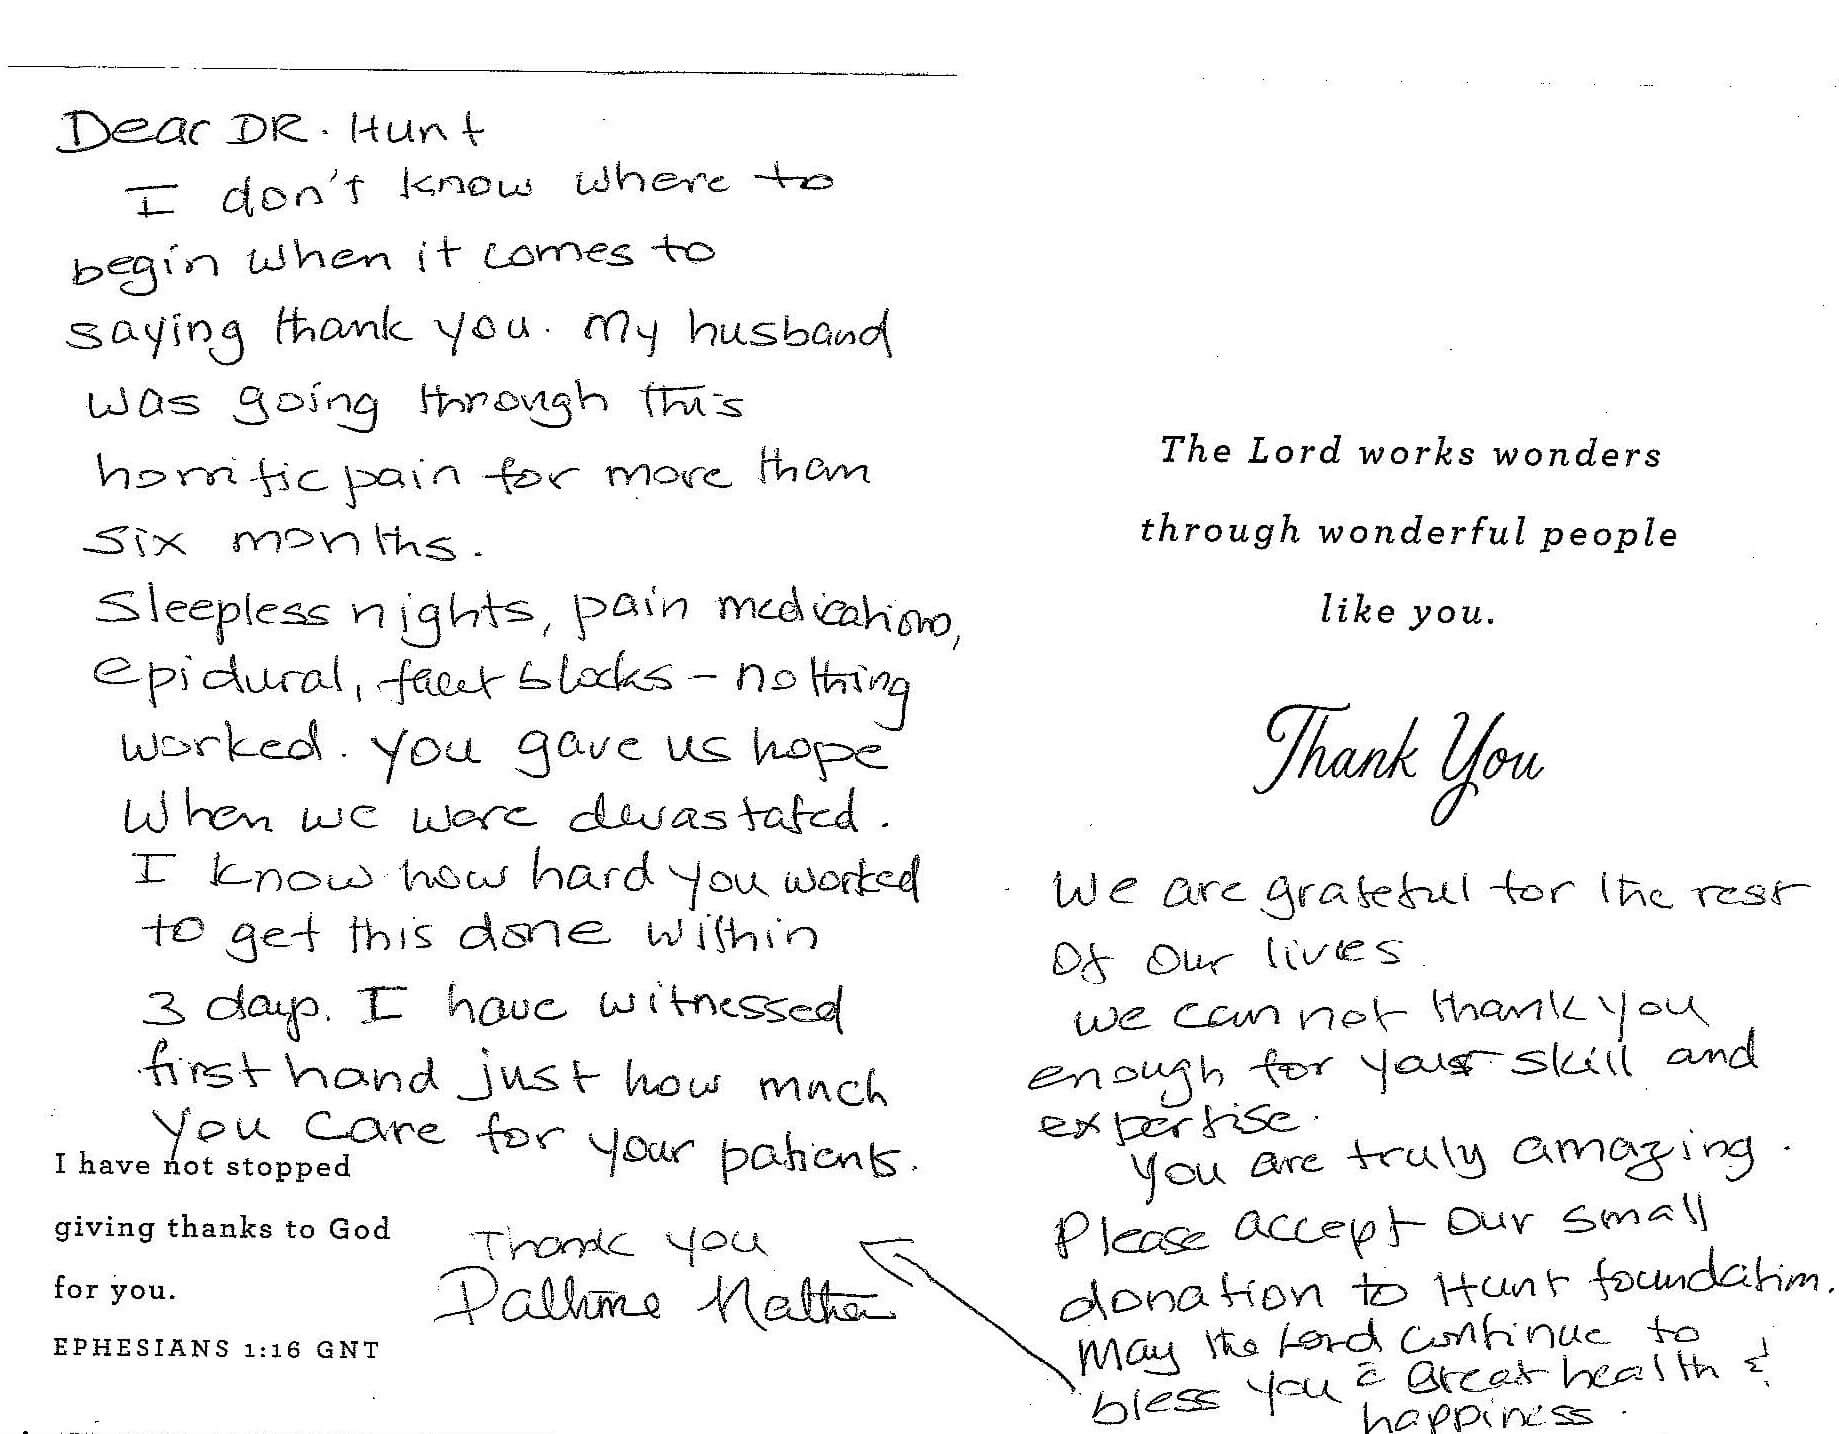 Dear DR. Hunt
I don't know where to
begin when it comes to
saying thank you. My husband
was going through this
horrific pain for more than
six months.
Sleepless nights, pain medications,
epidural, facet blocks – nothing
worked. you gave us hope
when we were devastated.
I know how hard you worked
to get this done within
3 days. I have witnessed
first hand just how much
you care for your patients.
I have not stopped
giving thanks to God
for you.
EPHESIANS 1:16 GNT
Thank you
The Lord works wonders
through wonderful people
like you.
Thank You
We are grateful for the rest
of our lives.
we can not thank you
enough for your skill and
expertise.
you are truly amazing.
Please accept our small
donation to Hunt foundation.
May the Lord continue to
bless you c̄ Great health &
happiness.